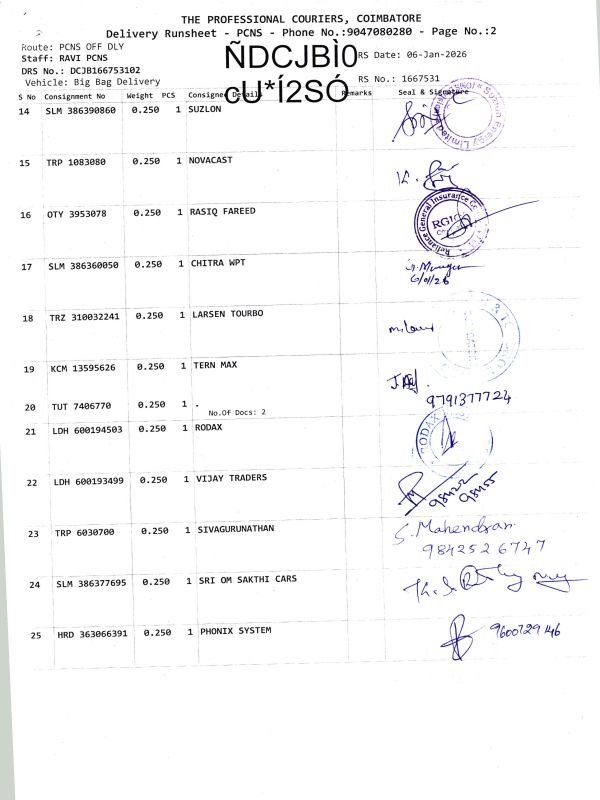 THE PROFESSIONAL COURIERS, COIMBATORE
Delivery Runsheet - PCNS - Phone No.:9047080280 - Page No.:2
Route: PCNS OFF DLY
ÑDCJBÌ0
RS Date: 06-Jan-2026
Staff: RAVI PCNS
DRS No.: DCJB166753102
Vehicle: Big Bag Delivery
cU*Í2SÓ
RS No.: 1667531
S No Consignment No Weight PCS Consignee Details Remarks Seal & Signature
14 SLM 386390860 0.250 1 SUZLON
Suzlon Energy Limited
15 TRP 1083080 0.250 1 NOVACAST
16 OTY 3953078 0.250 1 RASIQ FAREED
Reliance General Insurance Co
RGIC
17 SLM 386360050 0.250 1 CHITRA WPT
6/01/26
18 TRZ 310032241 0.250 1 LARSEN TOURBO
19 KCM 13595626 0.250 1 TERN MAX
9791377724
20 TUT 7406770 0.250 1 .
No.Of Docs: 2
21 LDH 600194503 0.250 1 RODAX
RODAX
22 LDH 600193499 0.250 1 VIJAY TRADERS
98422
98455
23 TRP 6030700 0.250 1 SIVAGURUNATHAN
S. Mahendran
9842526747
24 SLM 386377695 0.250 1 SRI OM SAKTHI CARS
25 HRD 363066391 0.250 1 PHONIX SYSTEM
9600729146